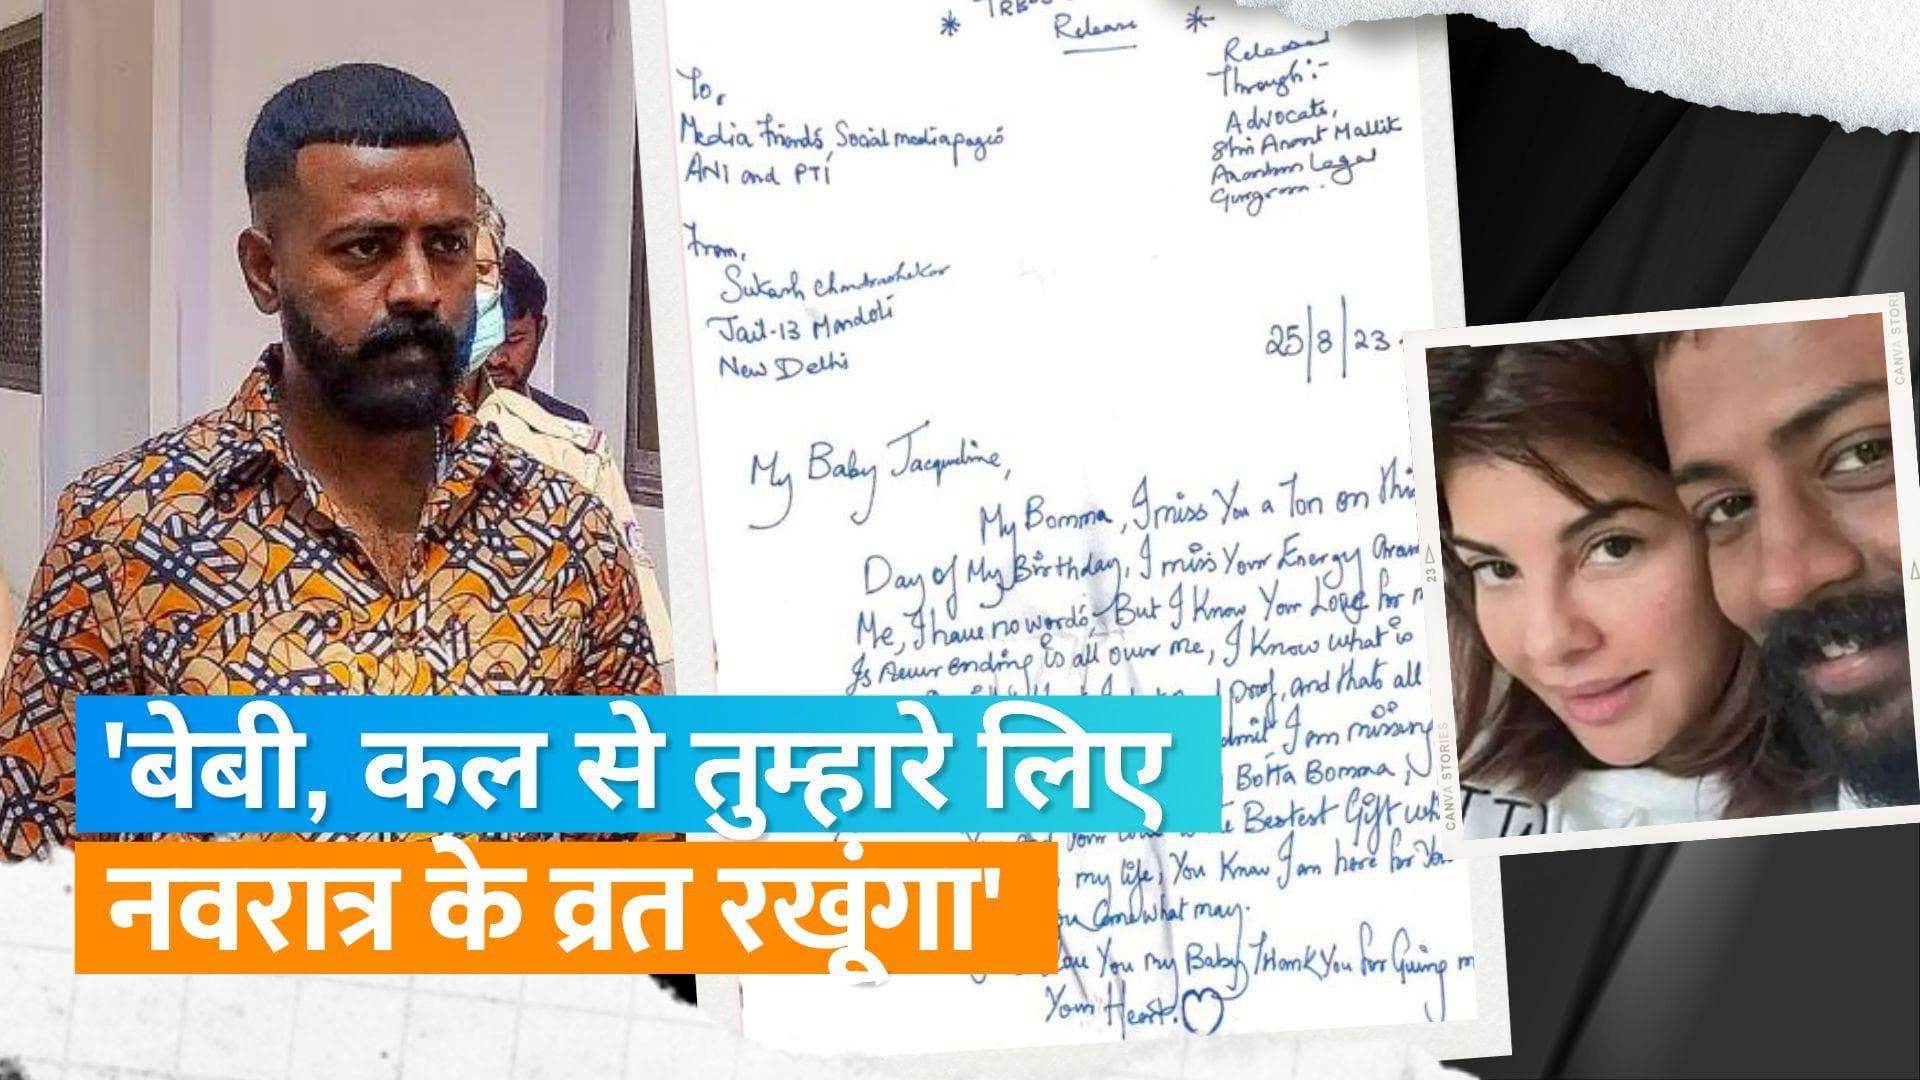 * Release *
To,
Media Friends, Social media pages
ANI and PTI
Released
Through:-
Advocate,
Shri Anant Mallik
Legal
From,
Sukash Chandrashekar
Jail-13 Mandoli
New Delhi
25/8/23
My Baby Jacqueline,
My Bomma, I miss You a Ton on this
Day of My Birthday, I miss Your Energy
Me, I have no words, But I Know Your Love for
Is never ending is all over me, I Know what is
Proof, and thats all
I am missing
Botta Bomma,
Bestest Gift
my life, You Know I am here for You
Come what may.
You my Baby, Thank You for Giving
Your Heart. ♡
'बेबी, कल से तुम्हारे लिए
नवरात्र के व्रत रखूंगा'
CANVA STORIES
23
CANVA STORI